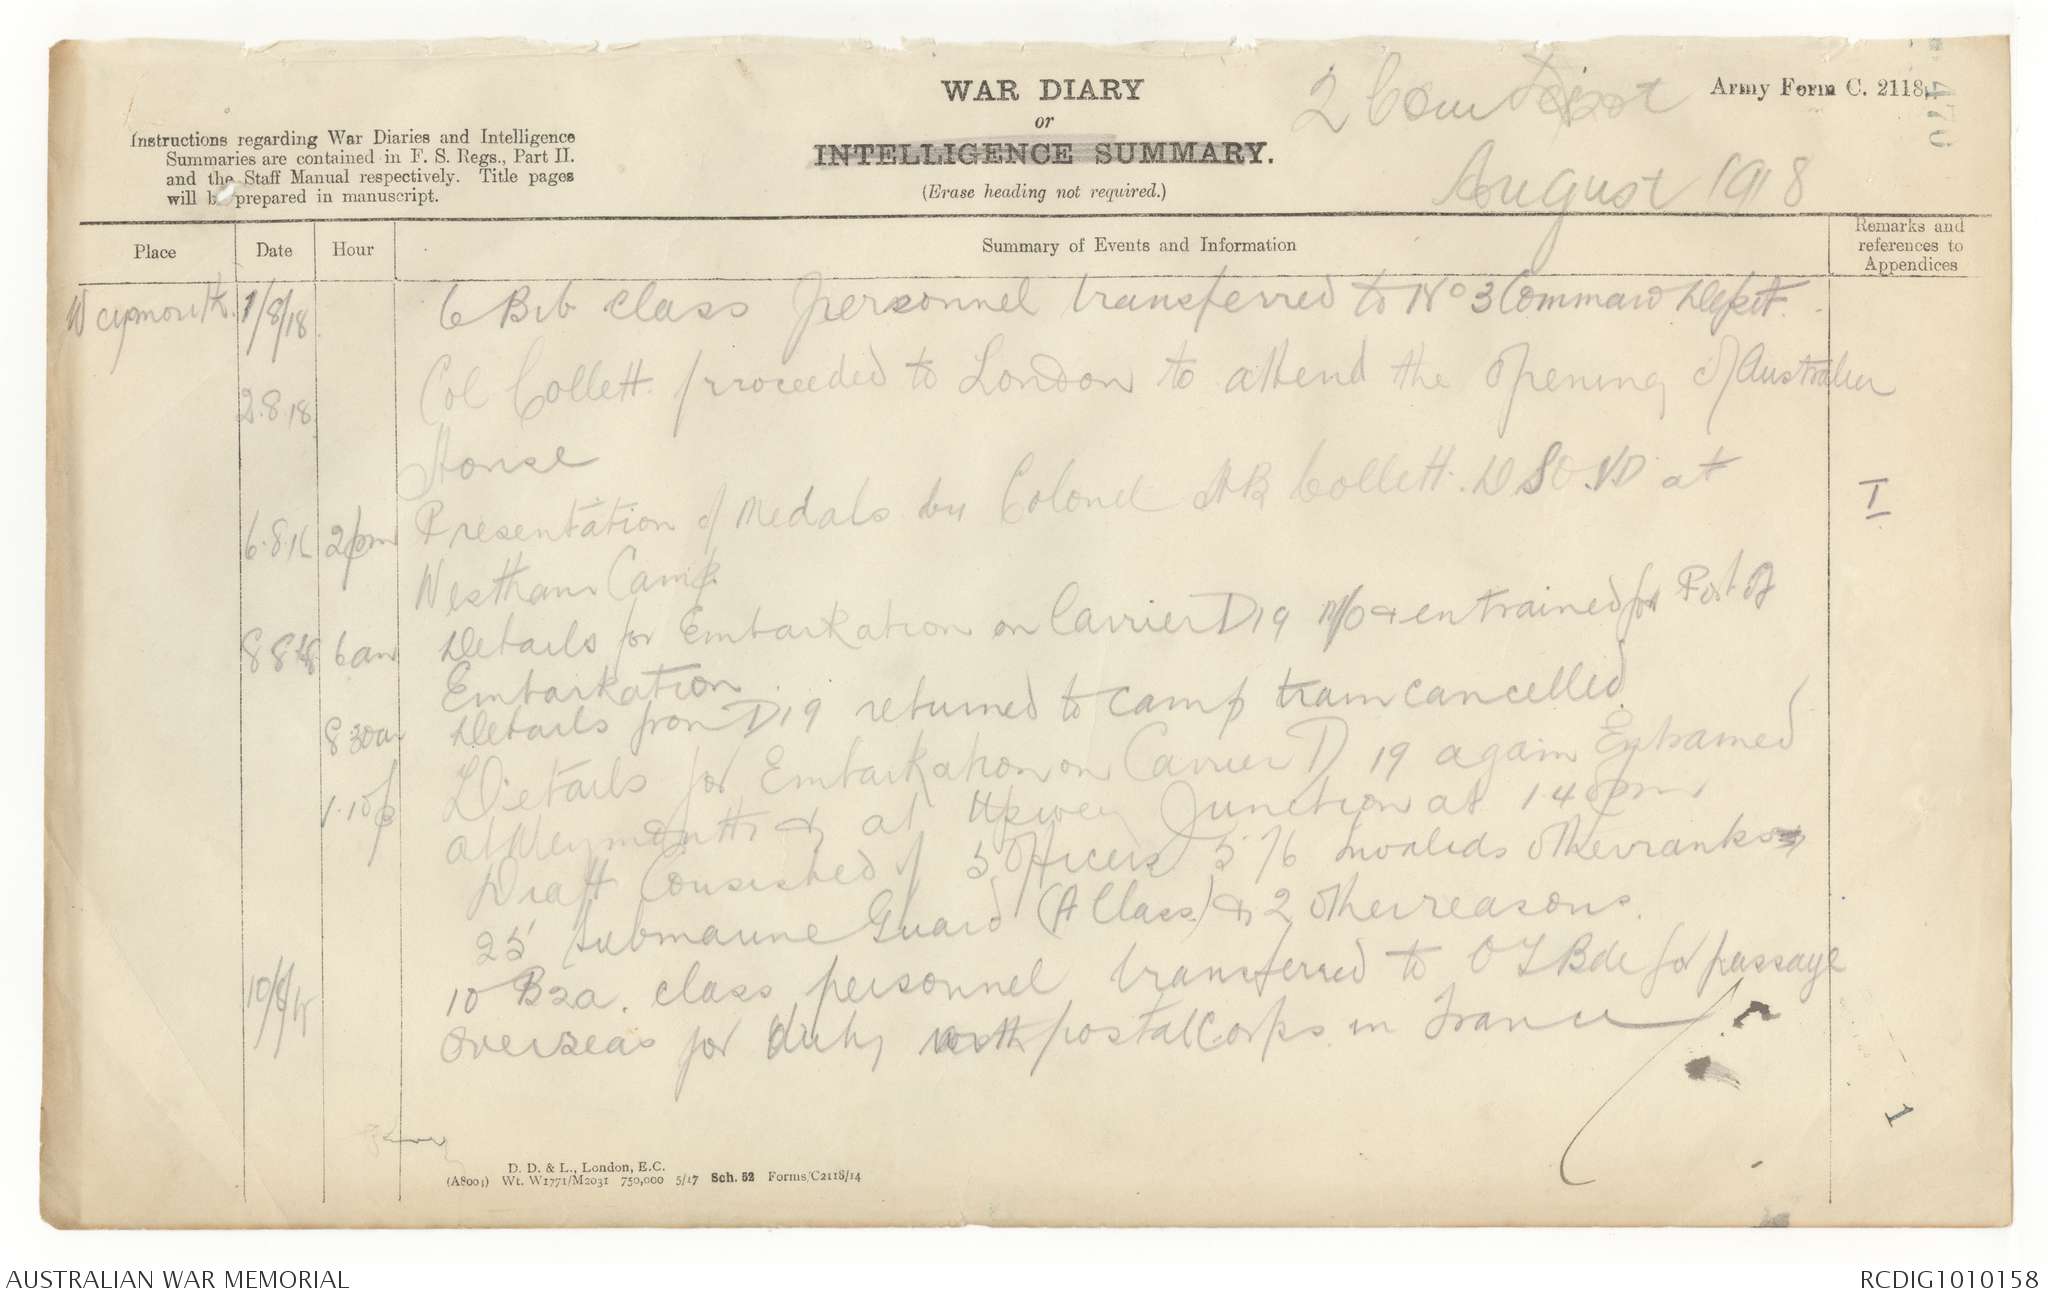 WAR DIARY
or
INTELLIGENCE SUMMARY.
(Erase heading not required.)
Instructions regarding War Diaries and Intelligence
Summaries are contained in F. S. Regs., Part II.
and the Staff Manual respectively. Title pages
will be prepared in manuscript.
2 Com Depot
August 1918
Army Form C. 2118.
Place Date Hour Summary of Events and Information Remarks and references to Appendices
Weymouth. 1/8/18 6 B1b class personnel transferred to No 3 Command Depot.
2.8.18 Col Collett proceeded to London to attend the opening of Australia
House
6.8.18 2pm Presentation of Medals by Colonel HB Collett. DSO. VD at I
Westham Camp
8 8 18 6am Details for Embarkation on Carrier D19 entrained for Port of
Embarkation
8 30am Details from D19 returned to camp train cancelled.
1.10p Details for Embarkation on Carrier D 19 again Entrained
at Weymouth & at Upwey Junction at 1 40pm
Draft Consisted of 5 Officers 576 Invalids other ranks
25 Submarine Guard (A Class) & 2 other reasons.
10/8/18 10 B2a. class personnel transferred to O T Bde for passage
overseas for duty with postal Corps in France
1
D. D. & L., London, E.C.
(A8004) Wt. W1771/M2031 750,000 5/17 Sch. 52 Forms/C2118/14
AUSTRALIAN WAR MEMORIAL
RCDIG1010158